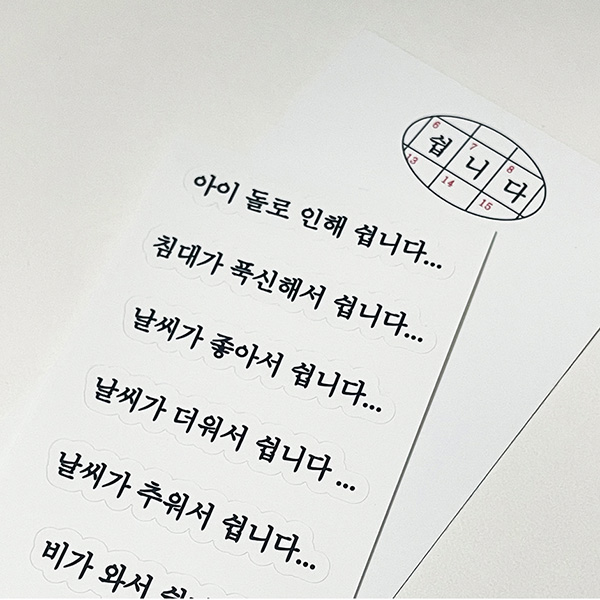 6 7 8
쉽 니 다
13 14 15
아이 돌로 인해 쉽니다...
침대가 푹신해서 쉽니다...
날씨가 좋아서 쉽니다...
날씨가 더워서 쉽니다 ...
날씨가 추워서 쉽니다...
비가 와서